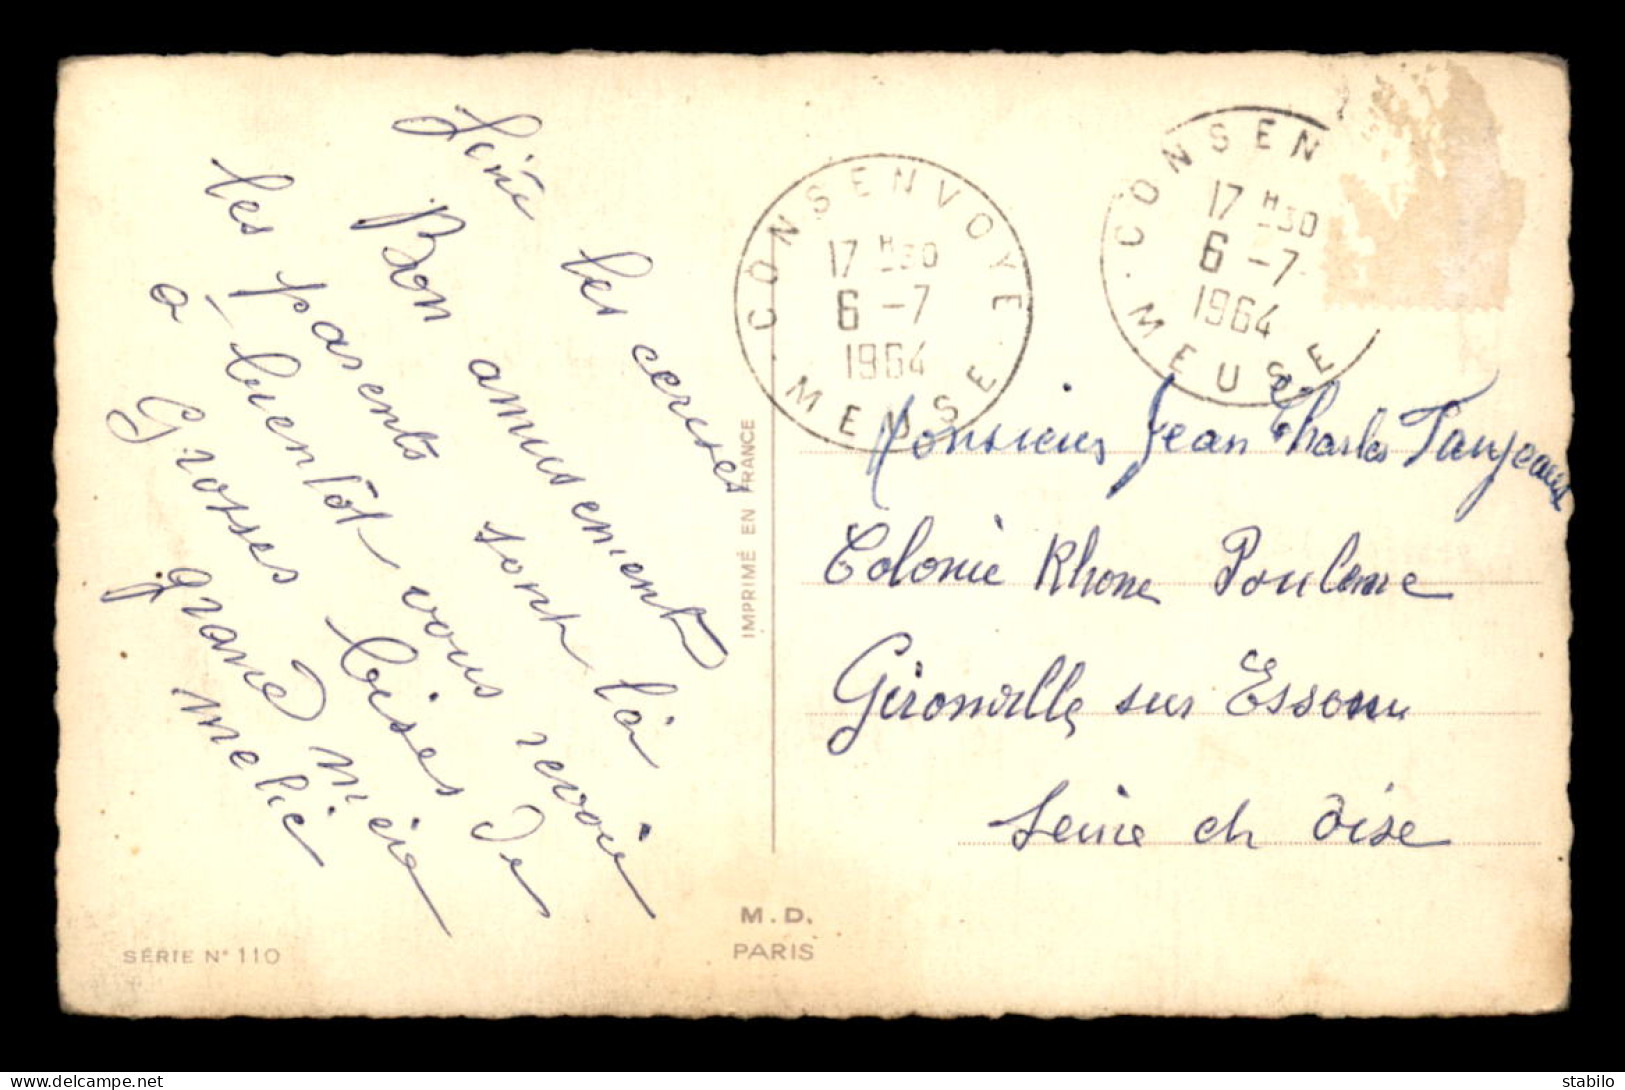 finie les cerises
Bon amusement
les parents sont là
à bientôt vous revoir
Grosses bises de
grand mère
melie
CONSENVOYE
17 H30
6 - 7
1964
MEUSE
CONSEN
17 H30
6 - 7
1964
MEUSE
Monsieur Jean Charles
Colonie Rhone Poulenc
Gironville sur Essonne
Seine et Oise
IMPRIMÉ EN FRANCE
M.D.
PARIS
SÉRIE N° 110
delcampe.net
stabilo